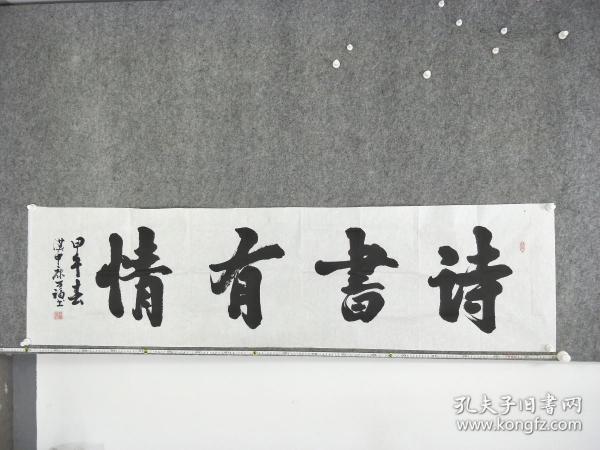 詩書有情
甲午春
漢中
孔夫子旧书网
www.kongfz.com